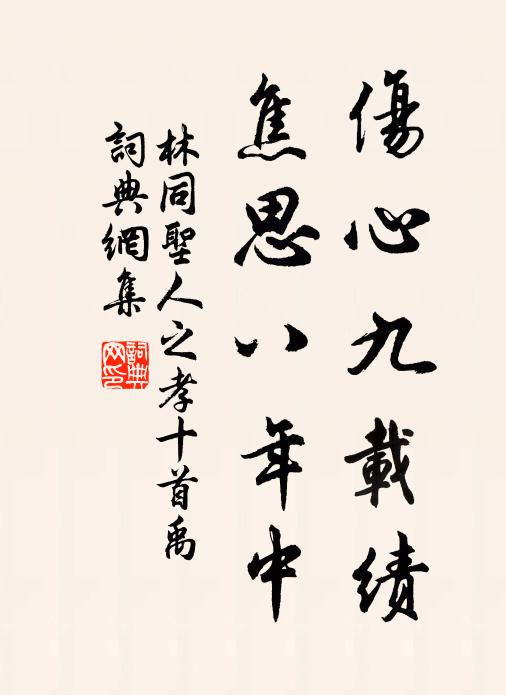 傷心九載績
焦思八年中
林同聖人之孝十首禹
詞典網集
詞典網印